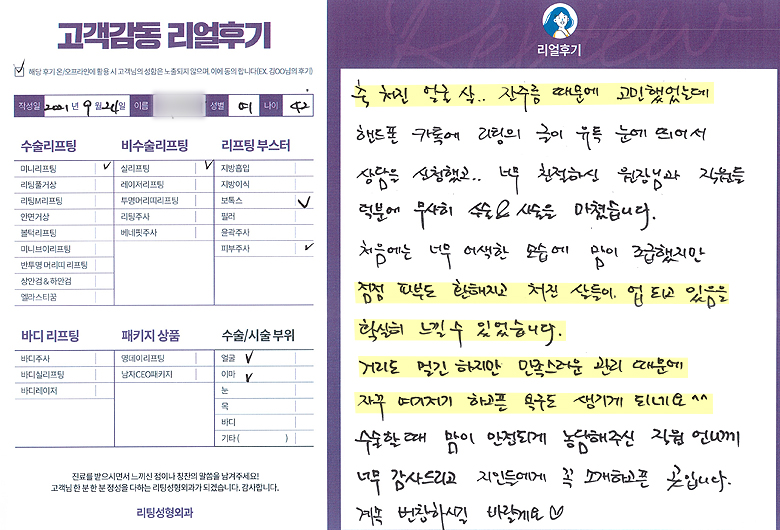 고객감동 리얼후기
해당 후기 온/오프라인에 활용 시 고객님의 성함은 노출되지 않으며, 이에 동의 합니다(EX. 김OO님의 후기)
작성일 2021년 9월 24일 이름 성별 여 나이 42
수술리프팅 비수술리프팅 리프팅 부스터
미니리프팅 ✓ 실리프팅 ✓ 지방흡입
리팅풀거상 레이저리프팅 지방이식
리팅M리프팅 투명머리띠리프팅 보톡스 ✓
안면거상 리팅주사 필러
볼턱리프팅 베네핏주사 윤곽주사
미니브이리프팅 피부주사 ✓
반투명 머리띠 리프팅
상안검 & 하안검
엘라스티꿈
바디 리프팅 패키지 상품 수술/시술 부위
바디주사 영데이리프팅 얼굴 ✓
바디실리프팅 남자CEO패키지 이마 ✓
바디레이저 눈
목
바디
기타 ( )
진료를 받으시면서 느끼신 점이나 칭찬의 말씀을 남겨주세요!
고객님 한 분 한 분 정성을 다하는 리팅성형외과가 되겠습니다. 감사합니다.
리팅성형외과
Review
리얼후기
축 처진 얼굴 살.. 잔주름 때문에 고민했었는데
핸드폰 카톡에 리팅의 글이 유독 눈에 띄어서
상담을 신청했고.. 너무 친절하신 원장님과 직원들
덕분에 무사히 수술& 시술을 마쳤습니다.
처음에는 너무 어색한 모습에 맘이 조급했지만
점점 피부도 환해지고 처진 살들이 업 되고 있음을
확실히 느낄 수 있었습니다.
거리도 멀긴 하지만 만족스러운 관리 때문에
자꾸 여기저기 하고픈 욕구도 생기게 되네요^^
수술할때 맘이 안정되게 농담해주신 직원 언니께
너무 감사드리고 지인들에게 꼭 소개하고픈 곳입니다.
계속 번창하시길 바랄게요♡